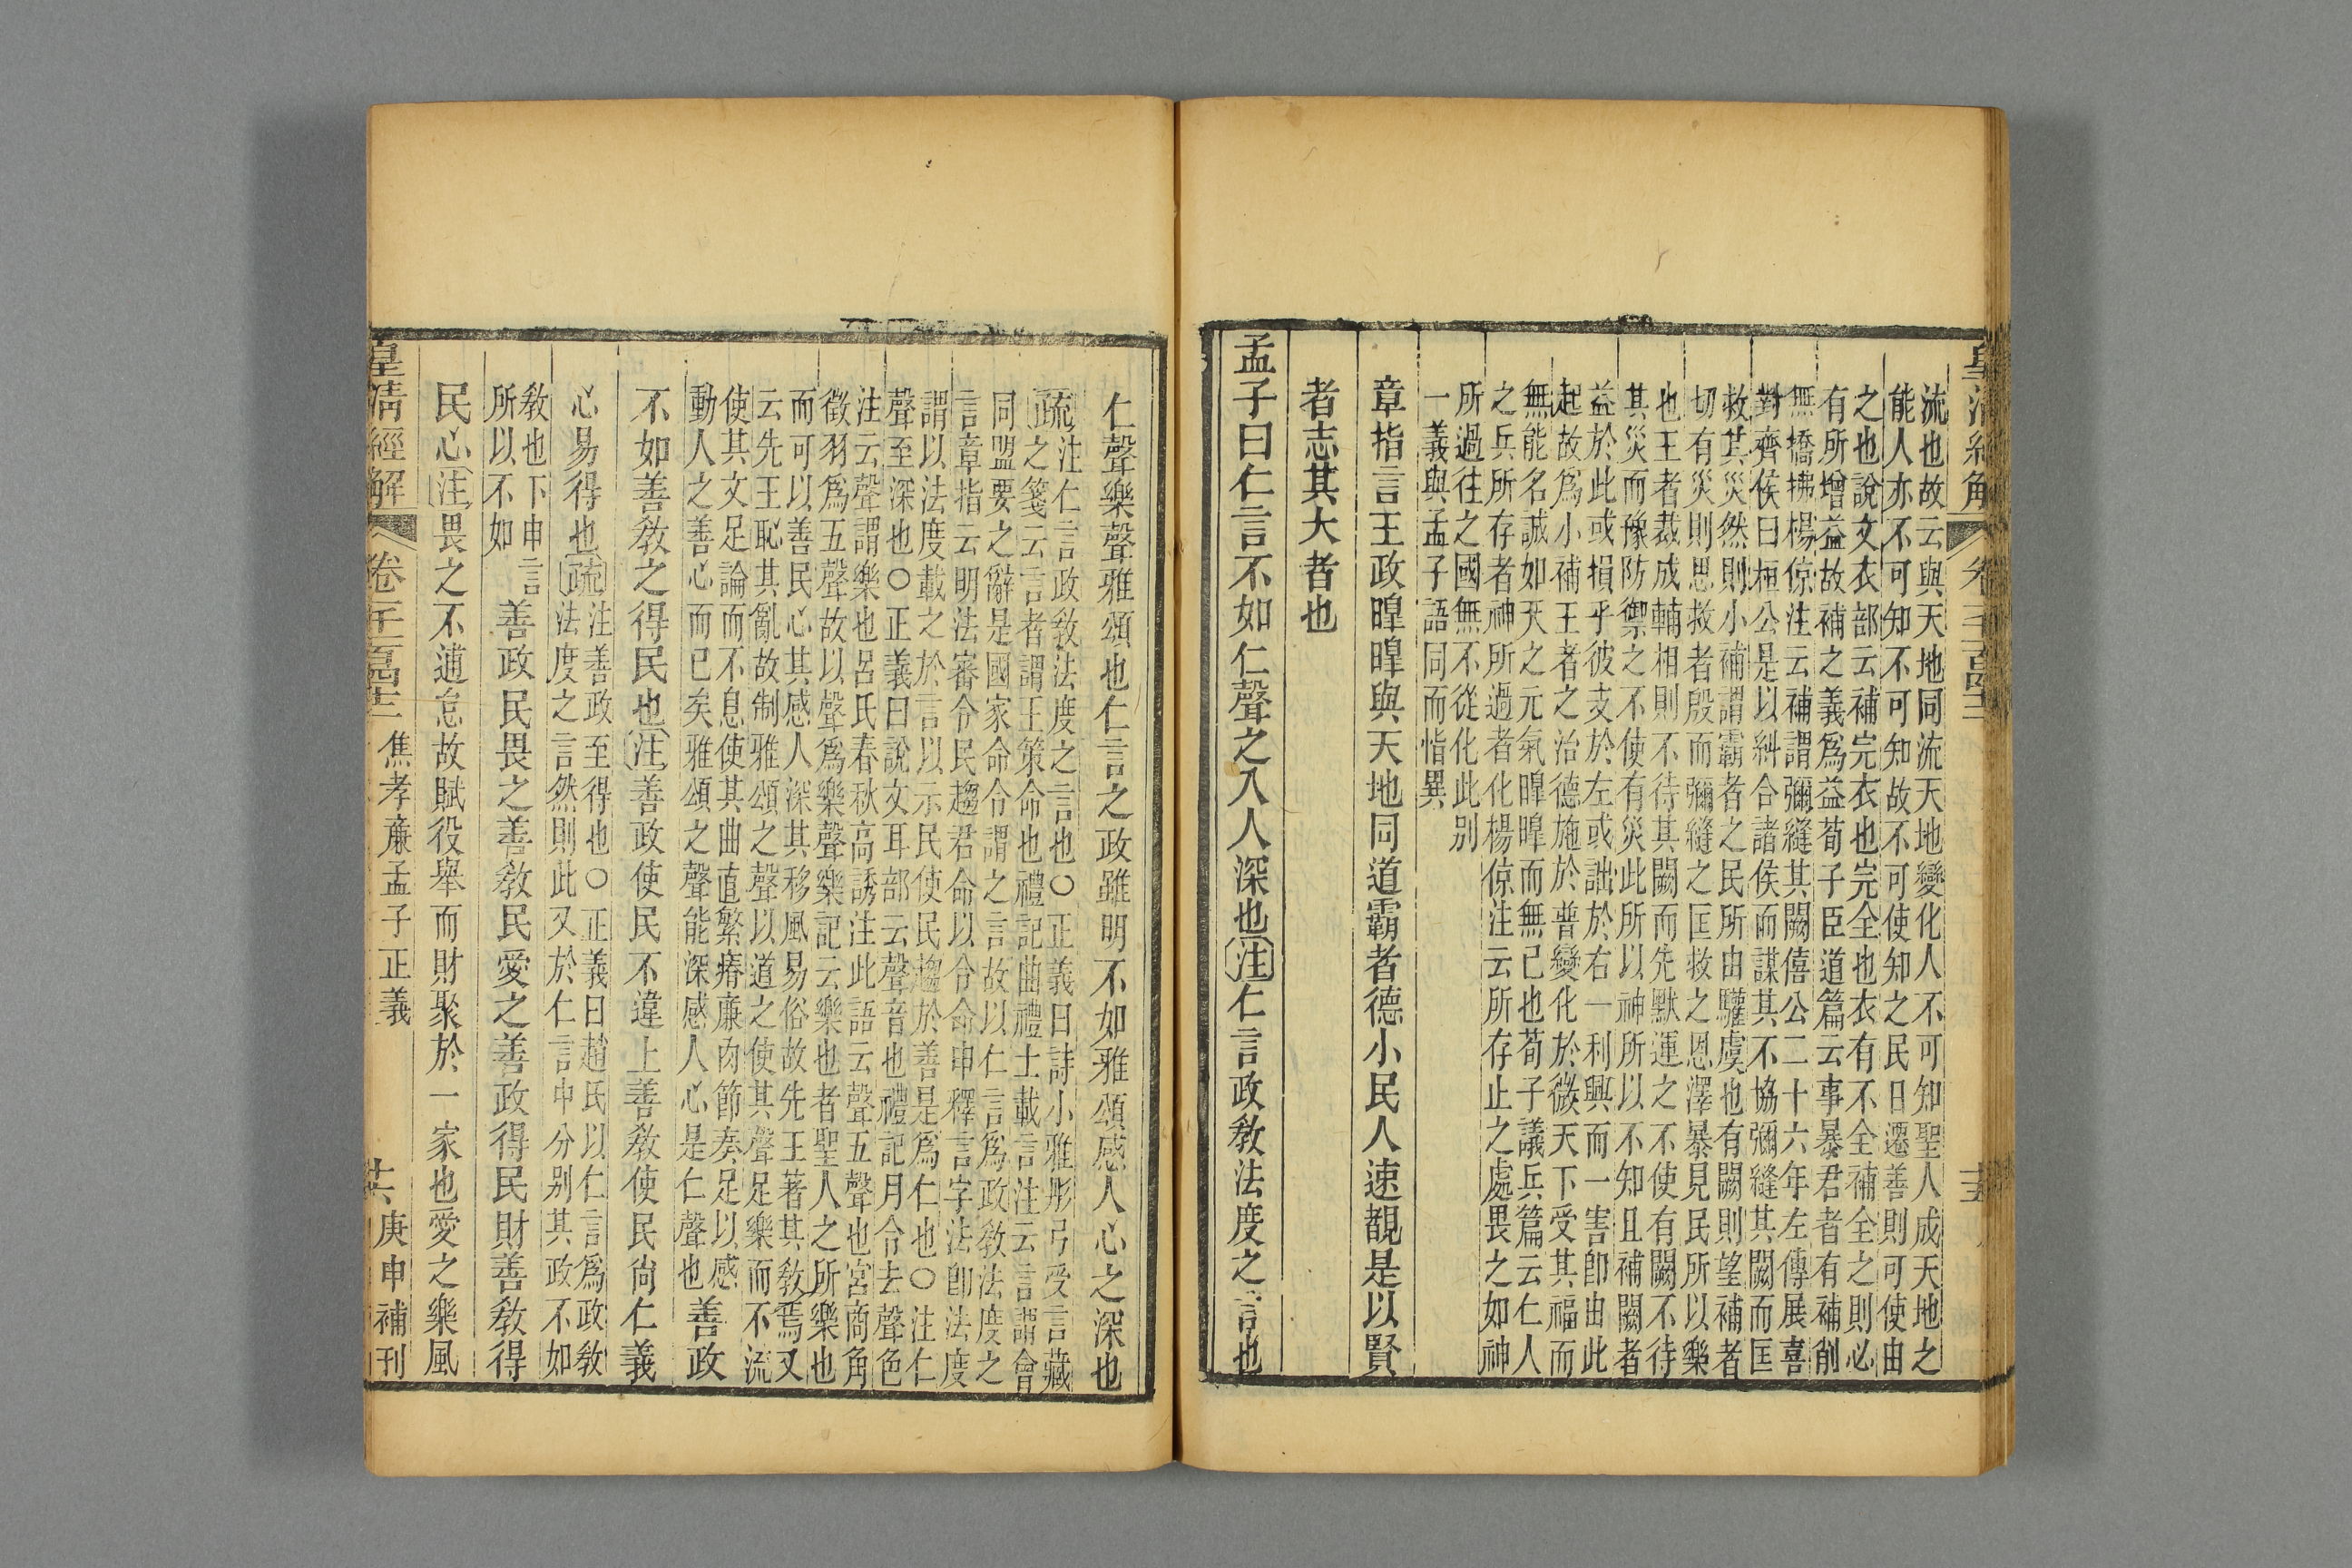 皇清經解
卷
流也故云與天地同流天地變化人不可知聖人成天地之
能人亦不可知不可知故不可使知之民日遷善則可使由
之也說文衣部云補完衣也完全也衣有不全補全之則必
有所增益故補之義爲益荀子臣道篇云事暴君者有補削
無撟拂楊倞注云補謂彌縫其闕僖公二十六年左傳展喜
對齊侯曰桓公是以糾合諸侯而謀其不協彌縫其闕而匡
救其災然則小補謂霸者之民所由驩虞也有闕則望補者
切有災則思救者殷而彌縫之匡救之恩澤暴見民所以樂
也王者裁成輔相則不待其闕而先默運之不使有闕不待
其災而豫防禦之不使有災此所以神所以不知且補闕者
益於此或損乎彼支於左或詘於右一利興而一害卽由此
起故爲小補王者之治德施於普變化於微天下受其福而
無能名誠如天之元氣暭暭而無已也荀子議兵篇云仁人
之兵所存者神所過者化楊倞注云所存止之處畏之如神
所過往之國無不從化此别
一義與孟子語同而恉異
章指言王政暭暭與天地同道霸者德小民人速覩是以賢
者志其大者也
孟子曰仁言不如仁聲之入人深也注仁言政敎法度之言也
仁聲樂聲雅頌也仁言之政雖明不如雅頌感人心之深也
疏注仁言政敎法度之言也○正義曰詩小雅彤弓受言藏
之箋云言者謂王策命也禮記曲禮士載言注云言謂會
同盟要之辭是國家命令謂之言故以仁言爲政敎法度之
言章指云明法審令民趨君命以令命申釋言字法卽法度
謂以法度載之於言以示民使民趨於善是爲仁也○注仁
聲至深也○正義曰說文耳部云聲音也禮記月令去聲色
注云聲謂樂也呂氏春秋高誘注此語云聲五聲也宮商角
徵羽爲五聲故以聲爲樂聲樂記云樂也者聖人之所樂也
而可以善民心其感人深其移風易俗故先王著其敎焉又
云先王恥其亂故制雅頌之聲以道之使其聲足樂而不流
使其文足論而不息使其曲直繁瘠廉肉節奏足以感
動人之善心而已矣雅頌之聲能深感人心是仁聲也 善政
不如善敎之得民也注善政使民不違上善敎使民尙仁義
心易得也疏注善政至得也○正義曰趙氏以仁言爲政敎
法度之言然則此又於仁言中分别其政不如
敎也下申言
所以不如 善政民畏之善敎民愛之善政得民財善敎得
民心注畏之不逋怠故賦役舉而財聚於一家也愛之樂風
皇清經解
卷
焦孝廉孟子正義
庚申補刊